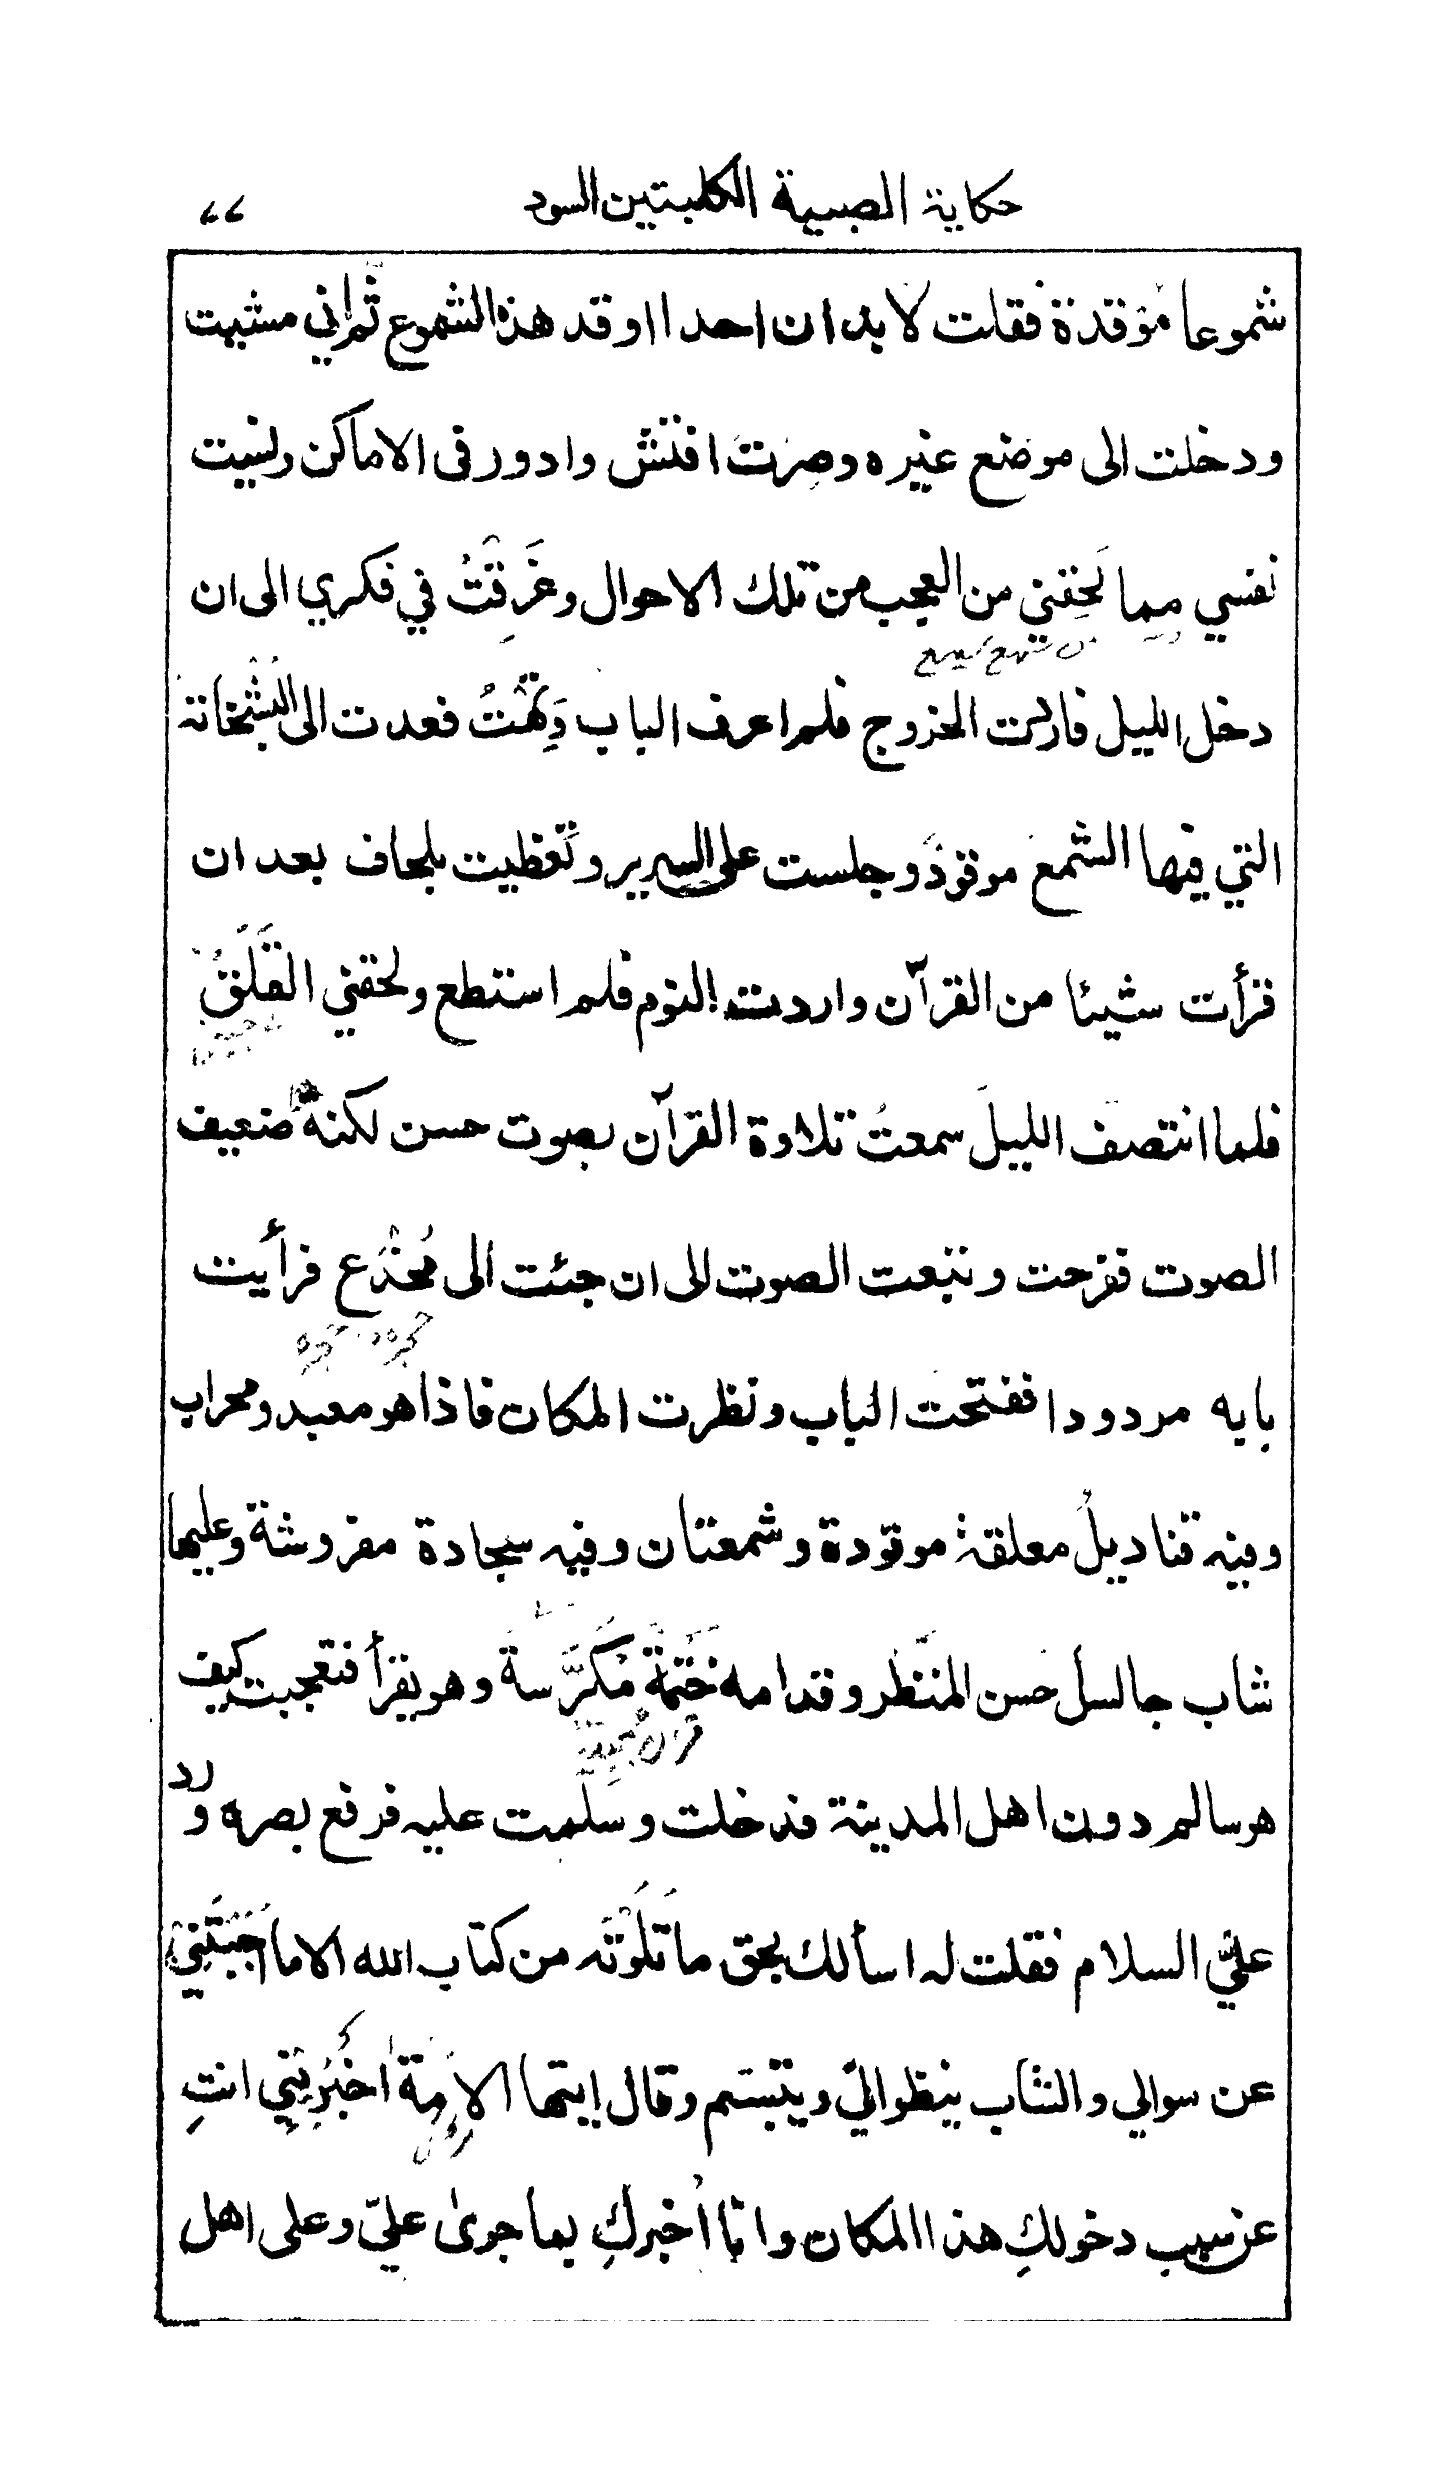 حكاية الصبية الكلبتين السود ٧٧
شموعا مُوقدة فقلت لا بد ان احدا اوقد هذه الشموع ثم اني مشيت
ودخلت الى موضع غيره وصرت افتش وادور فى الاماكن ونسيت
نفسي مما لَحِقني من العجب من تلك الاحوال وغَرِقتُ في فكري الى ان
دخل الليل فاردت الخروج فلم اعرف الباب وَتِهْتُ فعدت الى البشخانة
التي فيها الشمع موقودٌ وجلست على السرير وتَغطيت بلحاف بعد ان
قرأت شيئا من القرآن واردت النوم فلم استطع ولحقني القَلَقُ
فلما انتصف الليل سمعتُ تلاوة القرآن بصوت حسن لكنه ضعيف
الصوت ففرحت وتتبعت الصوت الى ان جئت الى مُخْدَع فرأيت
بابه مردودا ففتحت الباب ونظرت المكان فاذا هو معبد ومحراب
وفيه قناديلُ معلقة موقودة وشمعتان وفيه سجادة مفروشة وعليها
شاب جالس حسن المنظر وقدامه خَتْمَةٌ مُكَرَّسة وهو يقرأ فتعجبت كيف
هو سالم دون اهل المدينة فدخلت وسلمت عليه فرفع بصره ورد
عليَّ السلام فقلت له اسألك بحق ما تَلَوْتَه من كتاب الله الا ما اجَبْتَنِي
عن سوالي والشاب ينظر اليّ ويتبسم وقال ايتها الاَمة اَخْبِرِيني انتِ
عن سبب دخولكِ هذا المكان وانا اُخبركِ بما جرىٰ عليّ وعلى اهل